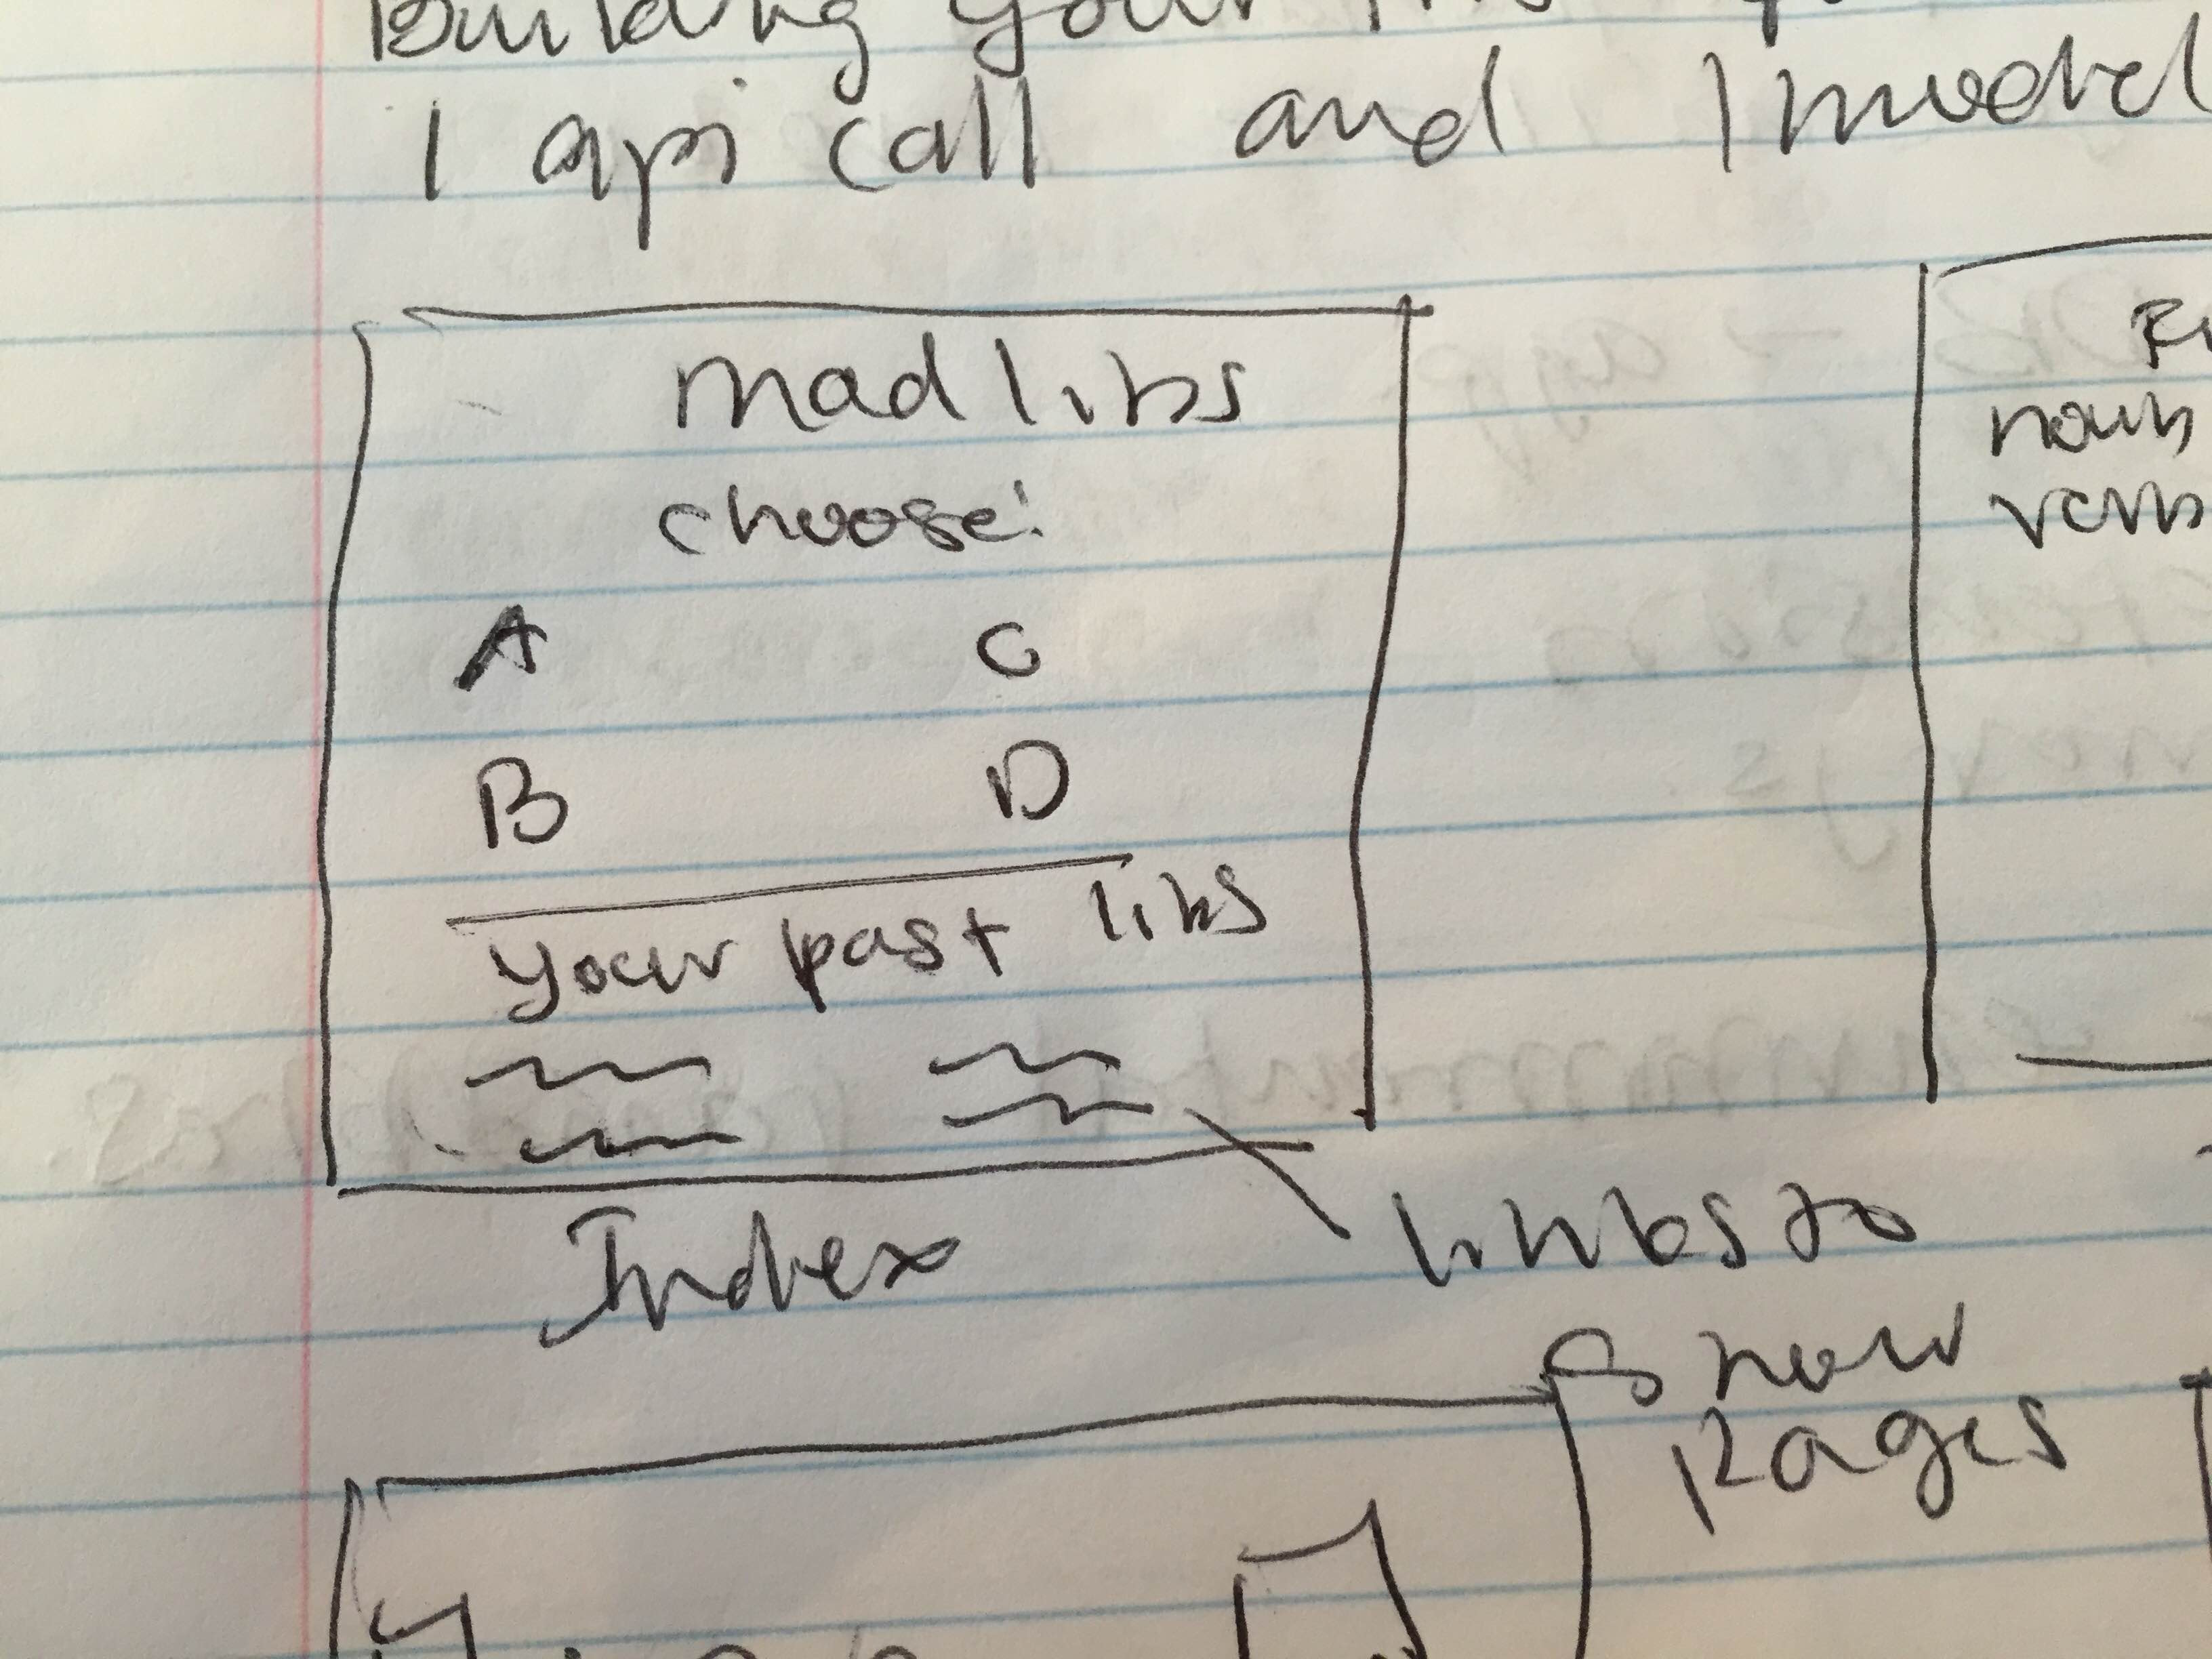 Building your
1 api call and 1 model
mad libs
choose:
A C
B D
your past libs
Index
links to
show
pages
noun
verb